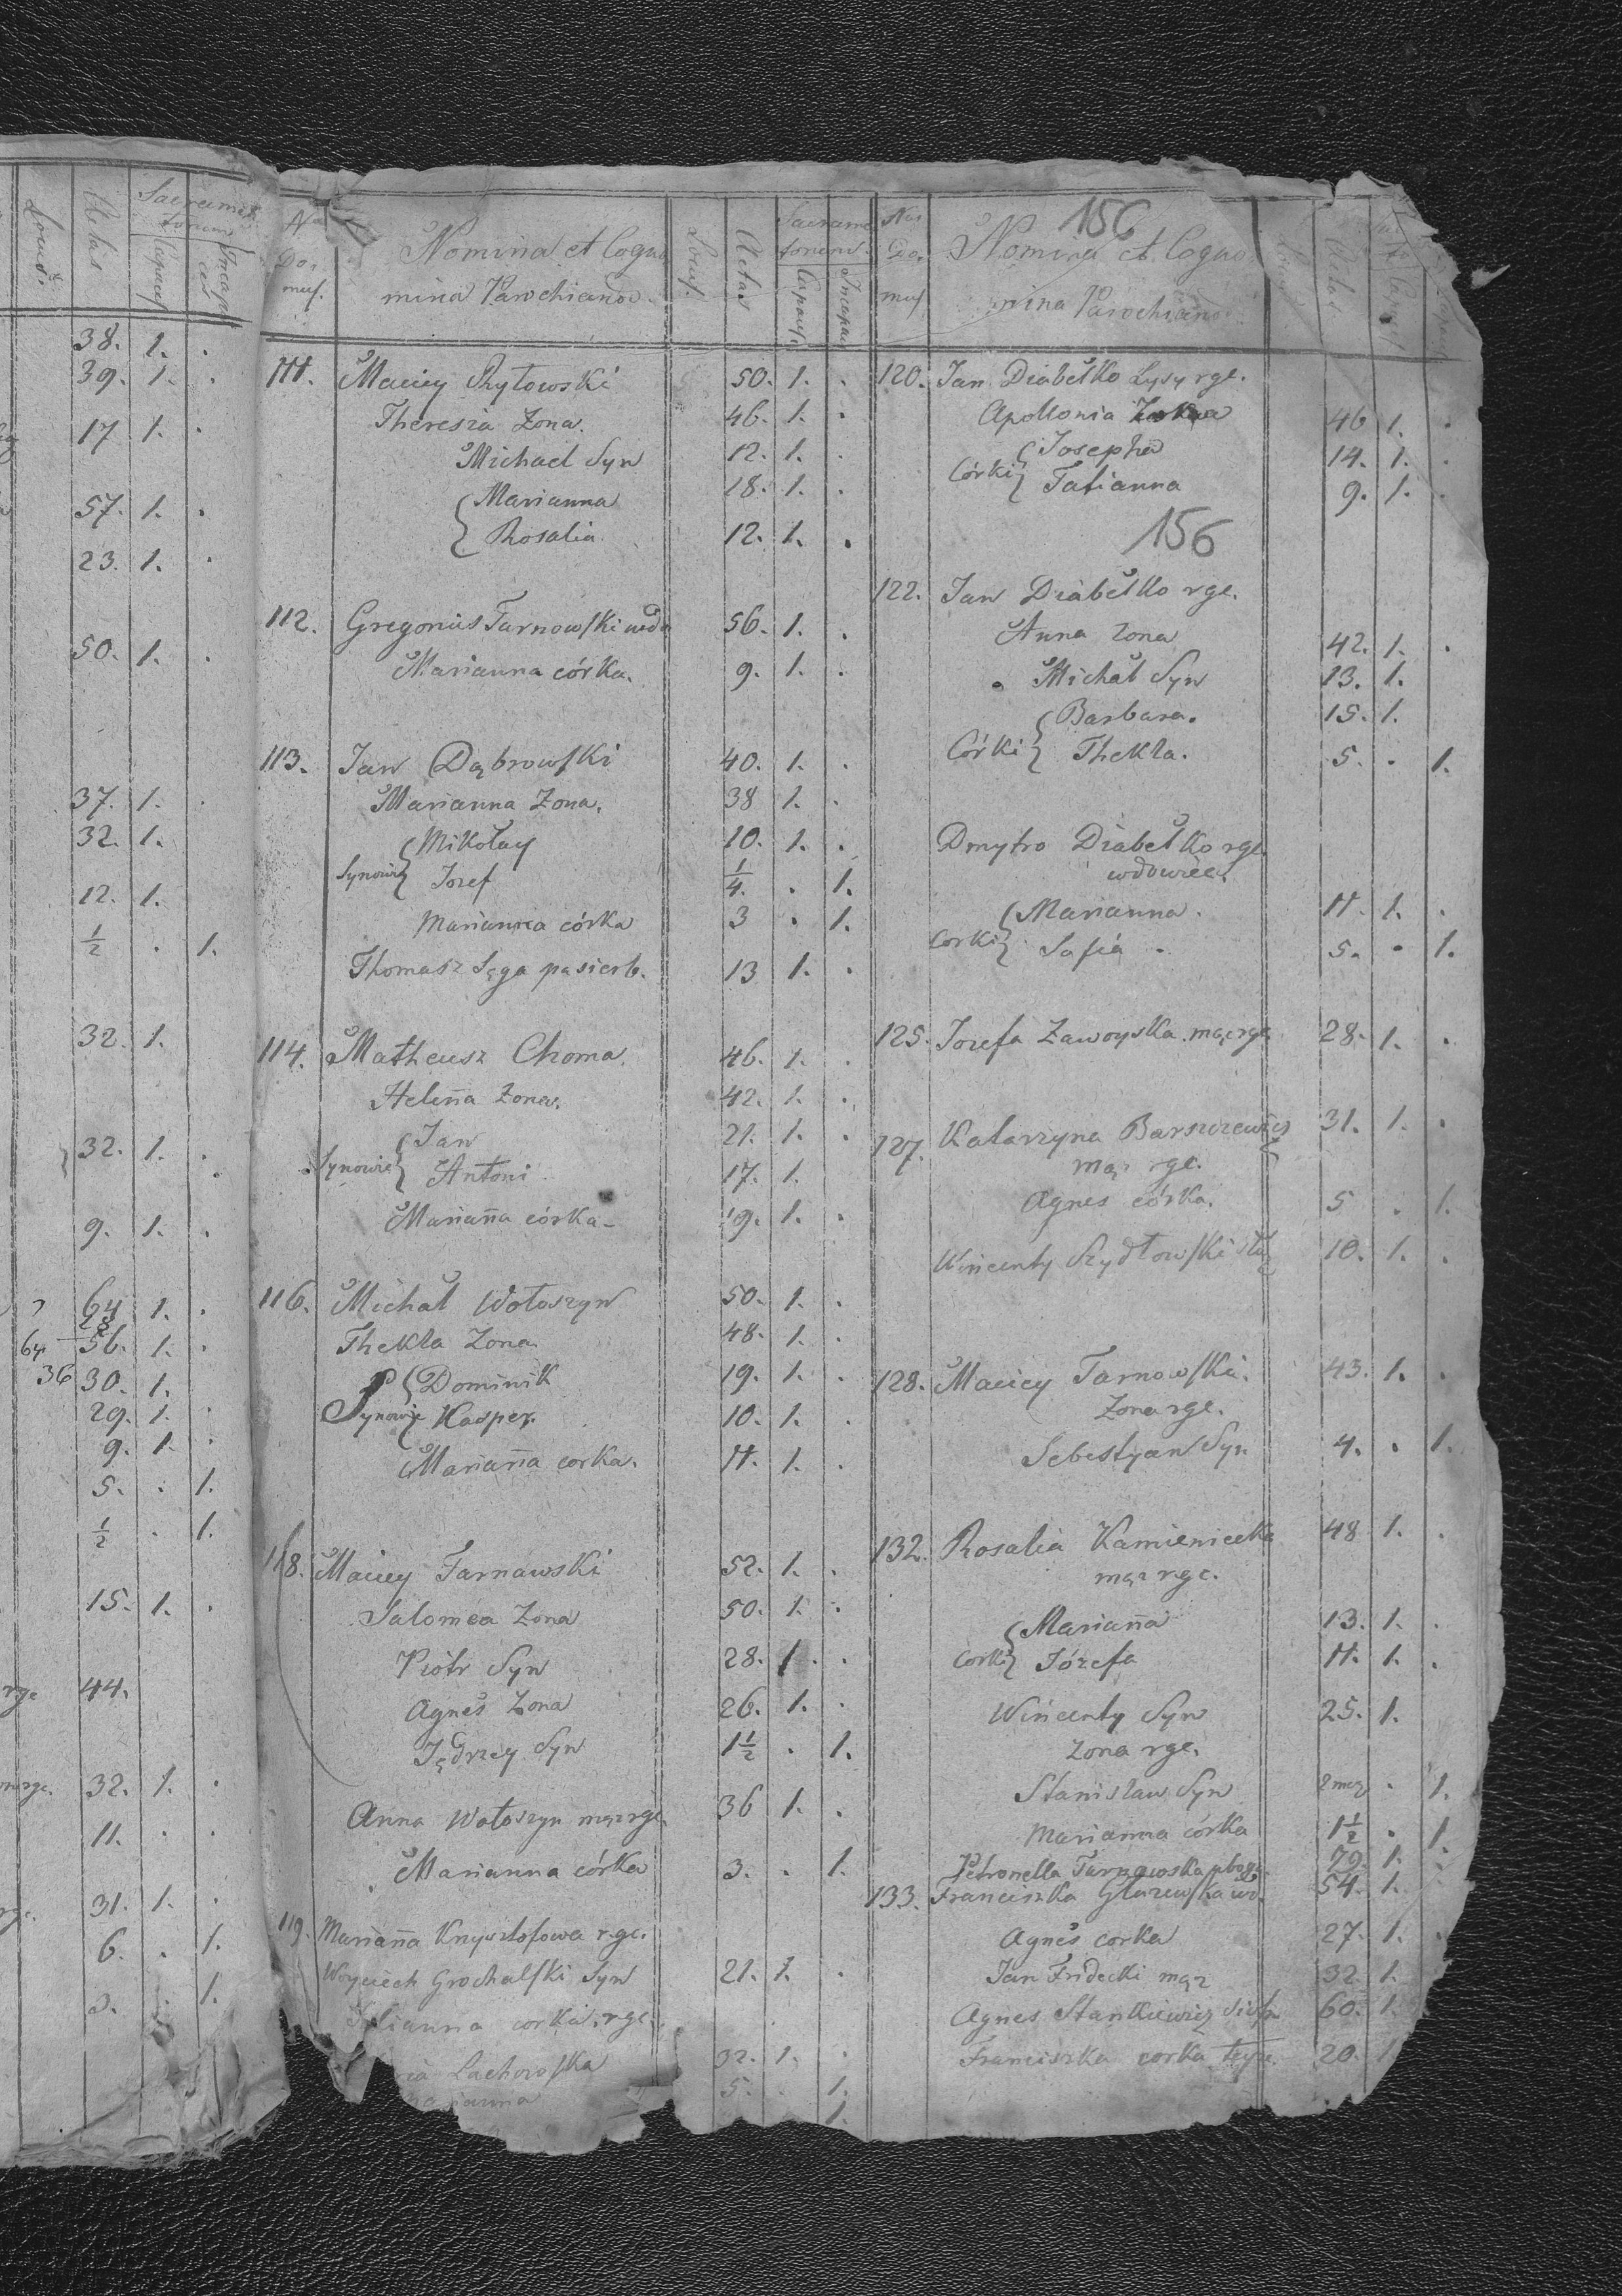 Locus.
Aetas
38. 1. .
39. 1. .
17 1. .
57. 1. .
23. 1. .
50. 1. .
37. 1. .
32. 1.
12. 1.
1/2 . 1.
32. 1.
32. 1. .
9. 1. .
64 1. .
64 56. 1. .
36 30. 1.
29. 1. .
9. 1. .
5. . 1.
1/2 . 1.
15. 1. .
rgc 44.
rgc. 32. 1. .
11. . .
31. 1. .
6. . 1.
3. . 1.
Nus Domus. Nomina et Cognomina Parochianor. Aetas Sacramentorum Capaces Incapaces
111. Maciey Rytowski 50. 1. .
Theresia Zona. 46. 1. .
Michael Syn 12. 1. .
Marianna 18. 1. .
Rosalia 12. 1. .
112. Gregorius Tarnowski wdo 56. 1. .
Marianna córka. 9. 1. .
113. Jan Dąbrowski 40. 1. .
Marianna Zona. 38 1. .
Synowie Mikołay 10. 1. .
Jozef 1/4. . 1.
Marianna córka 3 . 1.
Thomasz Sęga pasierb. 13 1. .
114. Matheusz Choma 46. 1. .
Helena Zona. 42. 1. .
Synowie Jan 21. 1. .
Antoni 17. 1.
Marianna córka 19. 1. .
116. Michał Wołoszyn 50. 1. .
Thekla Zona 48. 1. .
Synowie Dominik 19. 1. .
Kasper 10. 1. .
Marianna corka. 11. 1. .
118. Maciey Tarnawski 52. 1. .
Salomea Zona 50. 1. .
Piotr Syn 28. 1. .
Agnes Zona 26. 1. .
Jędrzey Syn 1 1/2 . 1.
Anna Wołoszyn mąz rgc. 36 1. .
Marianna córka 3. . 1.
119. Marianna Krysztofowa rgc.
Woyciech Grochalski Syn 21. 1. .
Julianna corka. rgc.
Lachowska 32. 1. .
5. . 1.
1.
156
Nus Domus Nomina et Cognomina Parochianor Aetas
120. Jan Diabełko Łysy rgc.
Apollonia Zona 46 1. .
Córki Josepha 14. 1. .
Tatianna 9. 1. .
156
122. Jan Diabełko rgc.
Anna Zona 42. 1. .
Michał Syn 13. 1.
Córki Barbara. 15. 1.
Thekla. 5. . 1.
Dmytro Diabełko rgc.
wdowiec.
Corki Marianna. 11. 1. .
Safia . 5. . 1.
125. Jozefa Zawoyska. mąz rgc 28. 1. .
127. Katarzyna Barszczewicz 31. 1. .
mąz rgc.
Agnes córka. 5 . 1.
Wincenty Szydłowski 10. 1. .
128. Maciey Tarnowski. 43. 1. .
Zona rgc.
Sebestyan Syn 4. . 1.
132. Rosalia Kamieniecka 48 1. .
mąz rgc.
Corki Marianna 13. 1. .
Józefa 11. 1. .
Wincenty Syn 25. 1.
Zona rgc.
Stanisław Syn . 1.
Marianna corka 1 1/2 . 1
Petronella Tarnowska 79. 1. .
133. Franciszka wd. 54. 1. .
Agnes corka 27. 1. .
Jan Fridecki mąz 32. 1.
Agnes Stankiewicz 60. 1.
Franciszka corka teyze 20. 1